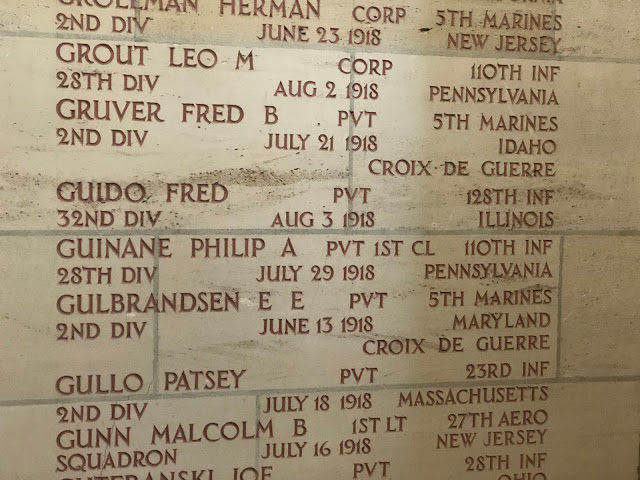 GROLLMAN HERMAN CORP 5TH MARINES
2ND DIV JUNE 23 1918 NEW JERSEY
GROUT LEO M CORP 110TH INF
28TH DIV AUG 2 1918 PENNSYLVANIA
GRUVER FRED B PVT 5TH MARINES
2ND DIV JULY 21 1918 IDAHO
CROIX DE GUERRE
GUIDO FRED PVT 128TH INF
32ND DIV AUG 3 1918 ILLINOIS
GUINANE PHILIP A PVT 1ST CL 110TH INF
28TH DIV JULY 29 1918 PENNSYLVANIA
GULBRANDSEN E E PVT 5TH MARINES
2ND DIV JUNE 13 1918 MARYLAND
CROIX DE GUERRE
GULLO PATSEY PVT 23RD INF
2ND DIV JULY 18 1918 MASSACHUSETTS
GUNN MALCOLM B 1ST LT 27TH AERO
SQUADRON JULY 16 1918 NEW JERSEY
JOE PVT 28TH INF
OHIO